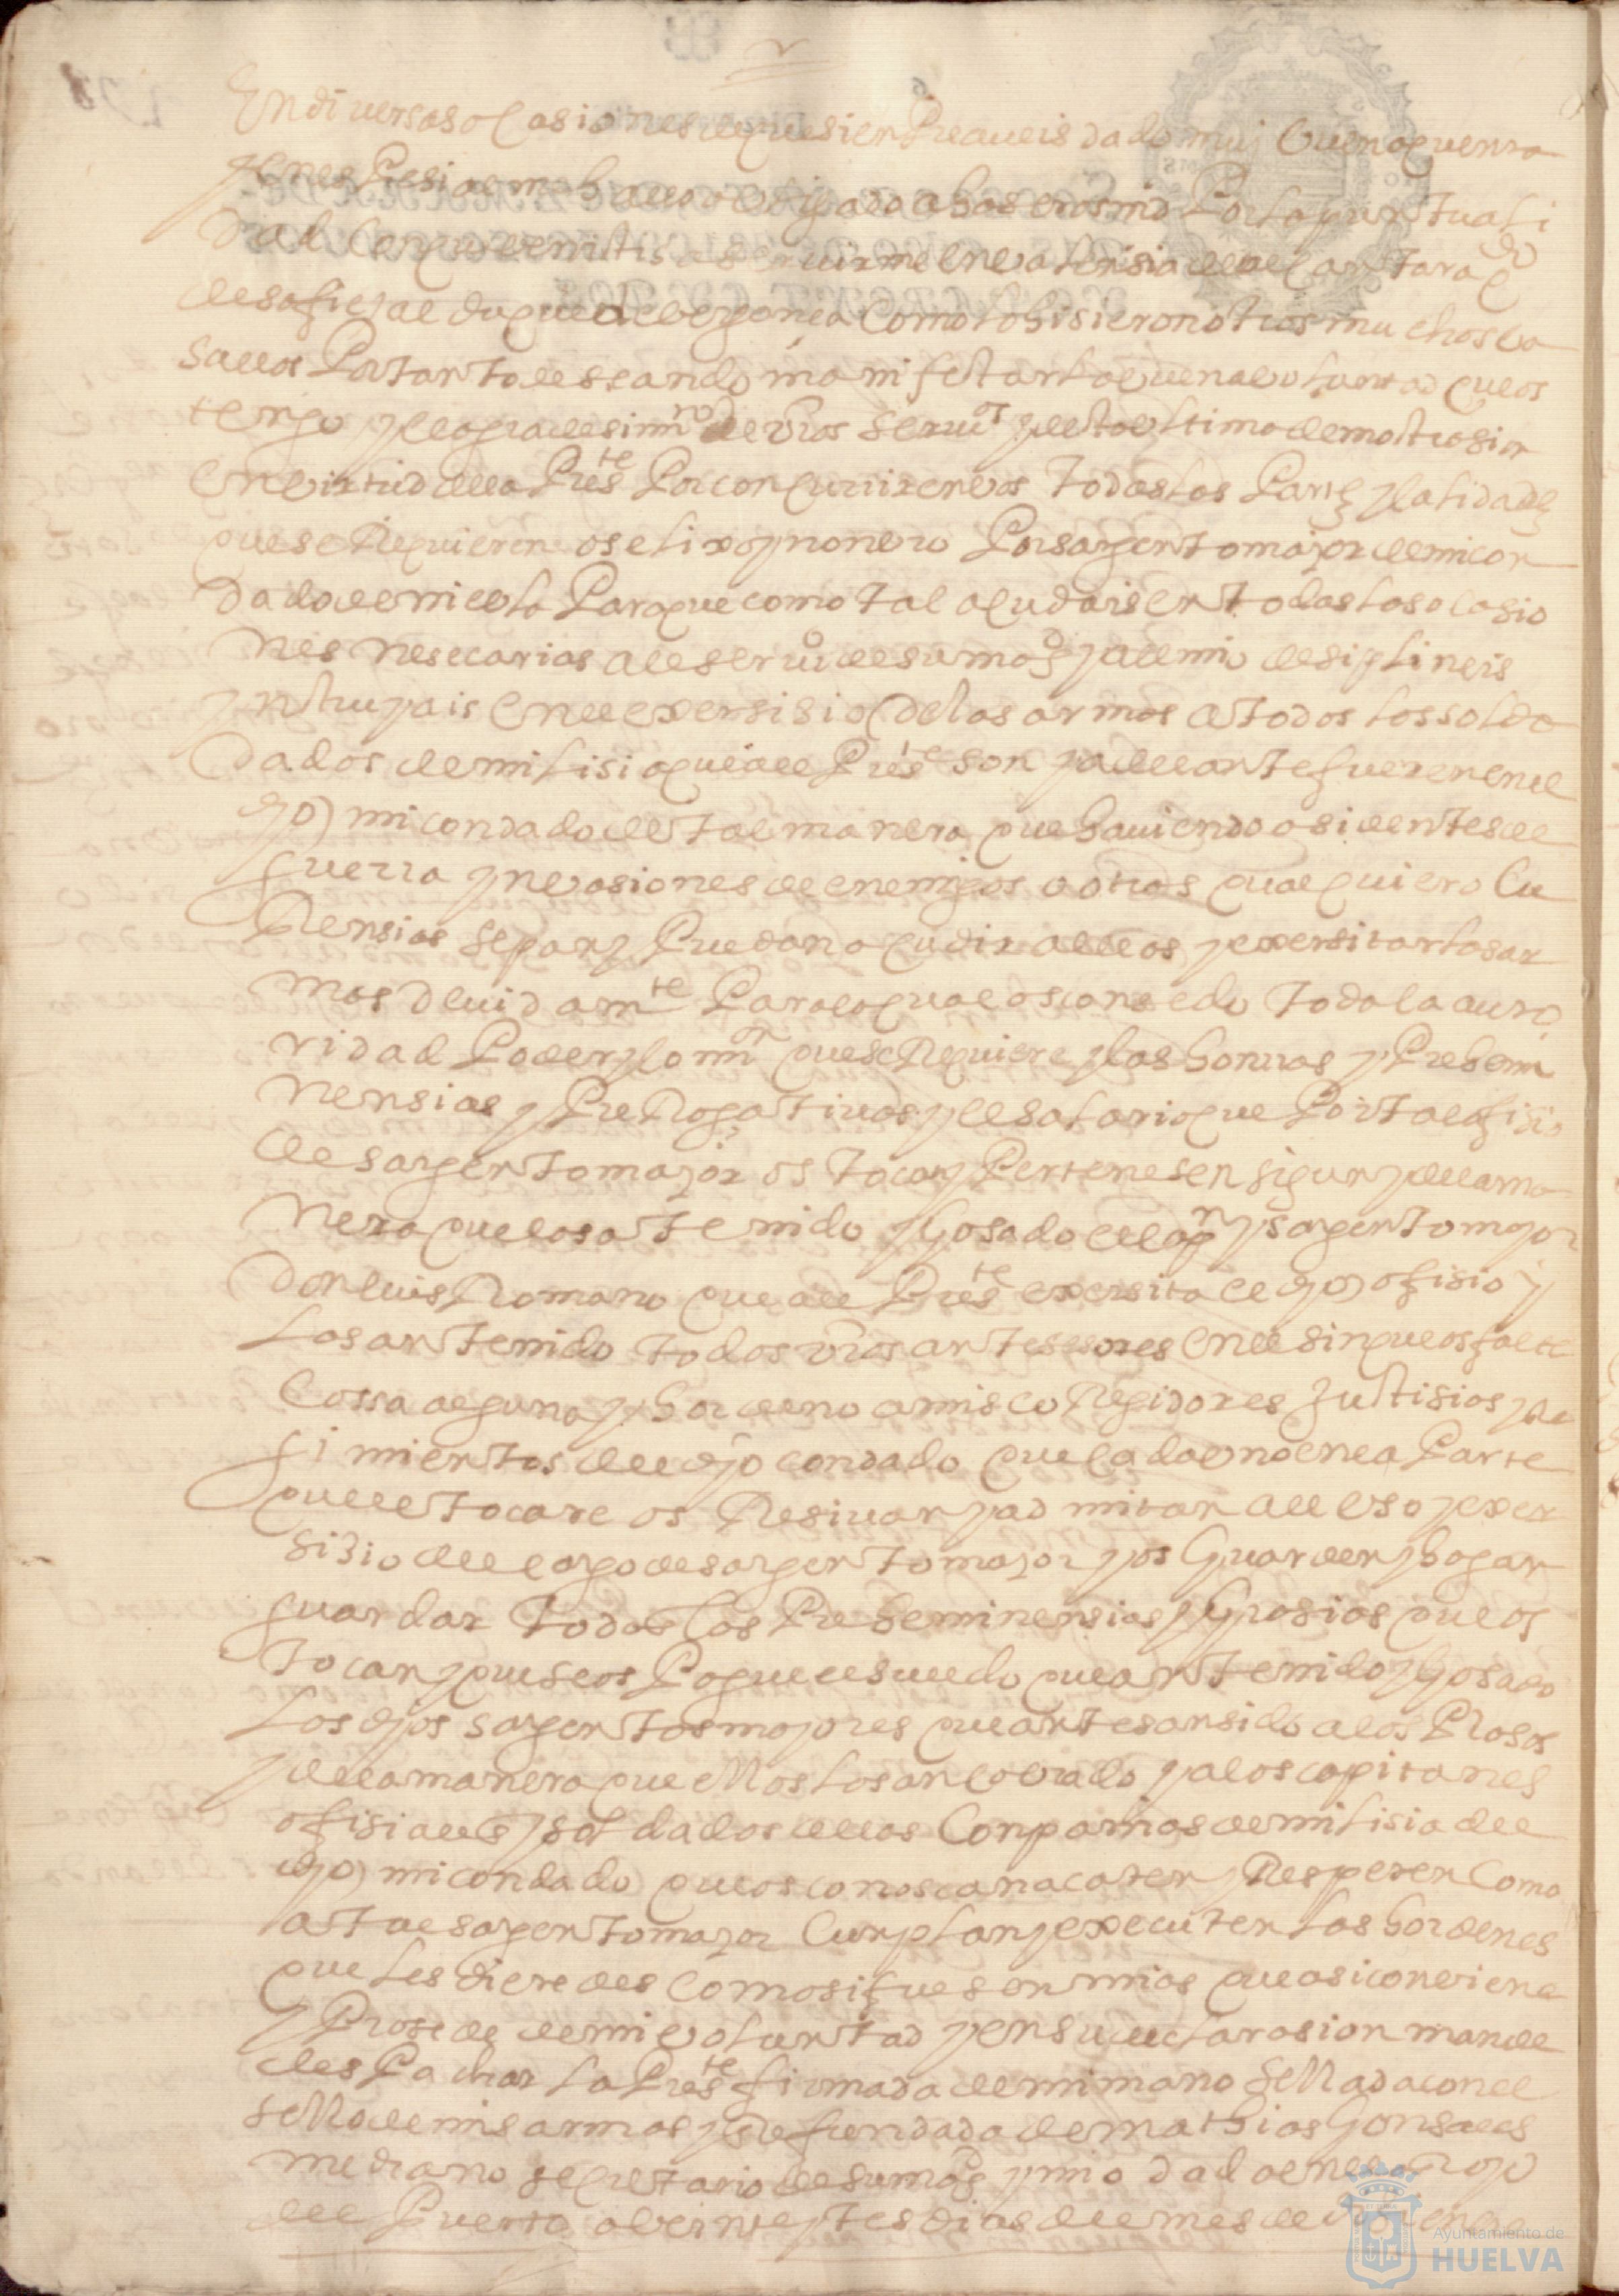 En diversas ocasiones de que sienpre aueis dado mui buena quenta
y en espesial me hallo obligado a haseros md por la puntuali
dad con que uenistis a seruirme en ocasion
desafio al duque de bergansa como lo hisieron otros muchos ba
sallos Por tanto desseando manifestar la buena voluntad que os
tengo y el agradesimto de vros seruos y esta ultima demostrasion
en virtud de la Preste Por concurrir en vos todas las Partes y calidades
que se Requieren os elixo y nonbro Por sargento major de mi con
dado de niebla Para que como tal acudais en todas las ocasio
nes nesecarias al seruo de su magd y al mio desiplineis
ynstrujais en el exersisio de las armas a todos los solda
dados de milisia que al Preste son y adelante fueren en el
dho mi condado de tal manera que hauiendo asidentes de
guerra ynvasiones de enemigos o otras qualesquiera
sepan y Puedan acudir a ellos y exersitar las ar
mas deuidamte Para lo qual os consedo toda la auto
ridad Poder y comon que se Requiere y las honras y Prehemi
nensias y PreRogatiuas y el salario que Por tal ofisio
de sargento major os tocan y Pertenesen sigun y de la ma
nera que los a tenido y gosado el capn y sargento major
don luis Romano que al Preste exersita el dho ofisio y
los an tenido todos vros antesesores en el sin que os falte
cossa alguna y hordeno a mis coRegidores justisias y Re
gimientos del dho condado que cada uno en la Parte
que le tocare os Resiuan y admitan al uso y exer
sisio del cargo de sargento major y os guarden y hagan
guardar todas las Preheminensias y grasias que os
tocan y que se os Pague el sueldo que an tenido y gosado
los dhos sargentos majores que antes an sido a los Plasos
y de la manera que ellos los an cobrado y a los capitanes
ofisiales y soldados de las Conpañias de milisia del
dho mi condado que os conoscan acaten y Respeten Como
a tal sargento major Cunplan y executen las hordenes
que les dieredes como si fuesen mias que asi conviene
y Prosede de mi voluntad y en su declarasion mande
desPachar la Preste firmada de mi mano sellada con el
sello de mis armas y Refrendada de mathias Gonsales
mediano secretario de su magd y mio dada en
del Puerto a veinte y tres dias del mes de
Ayuntamiento de
HUELVA